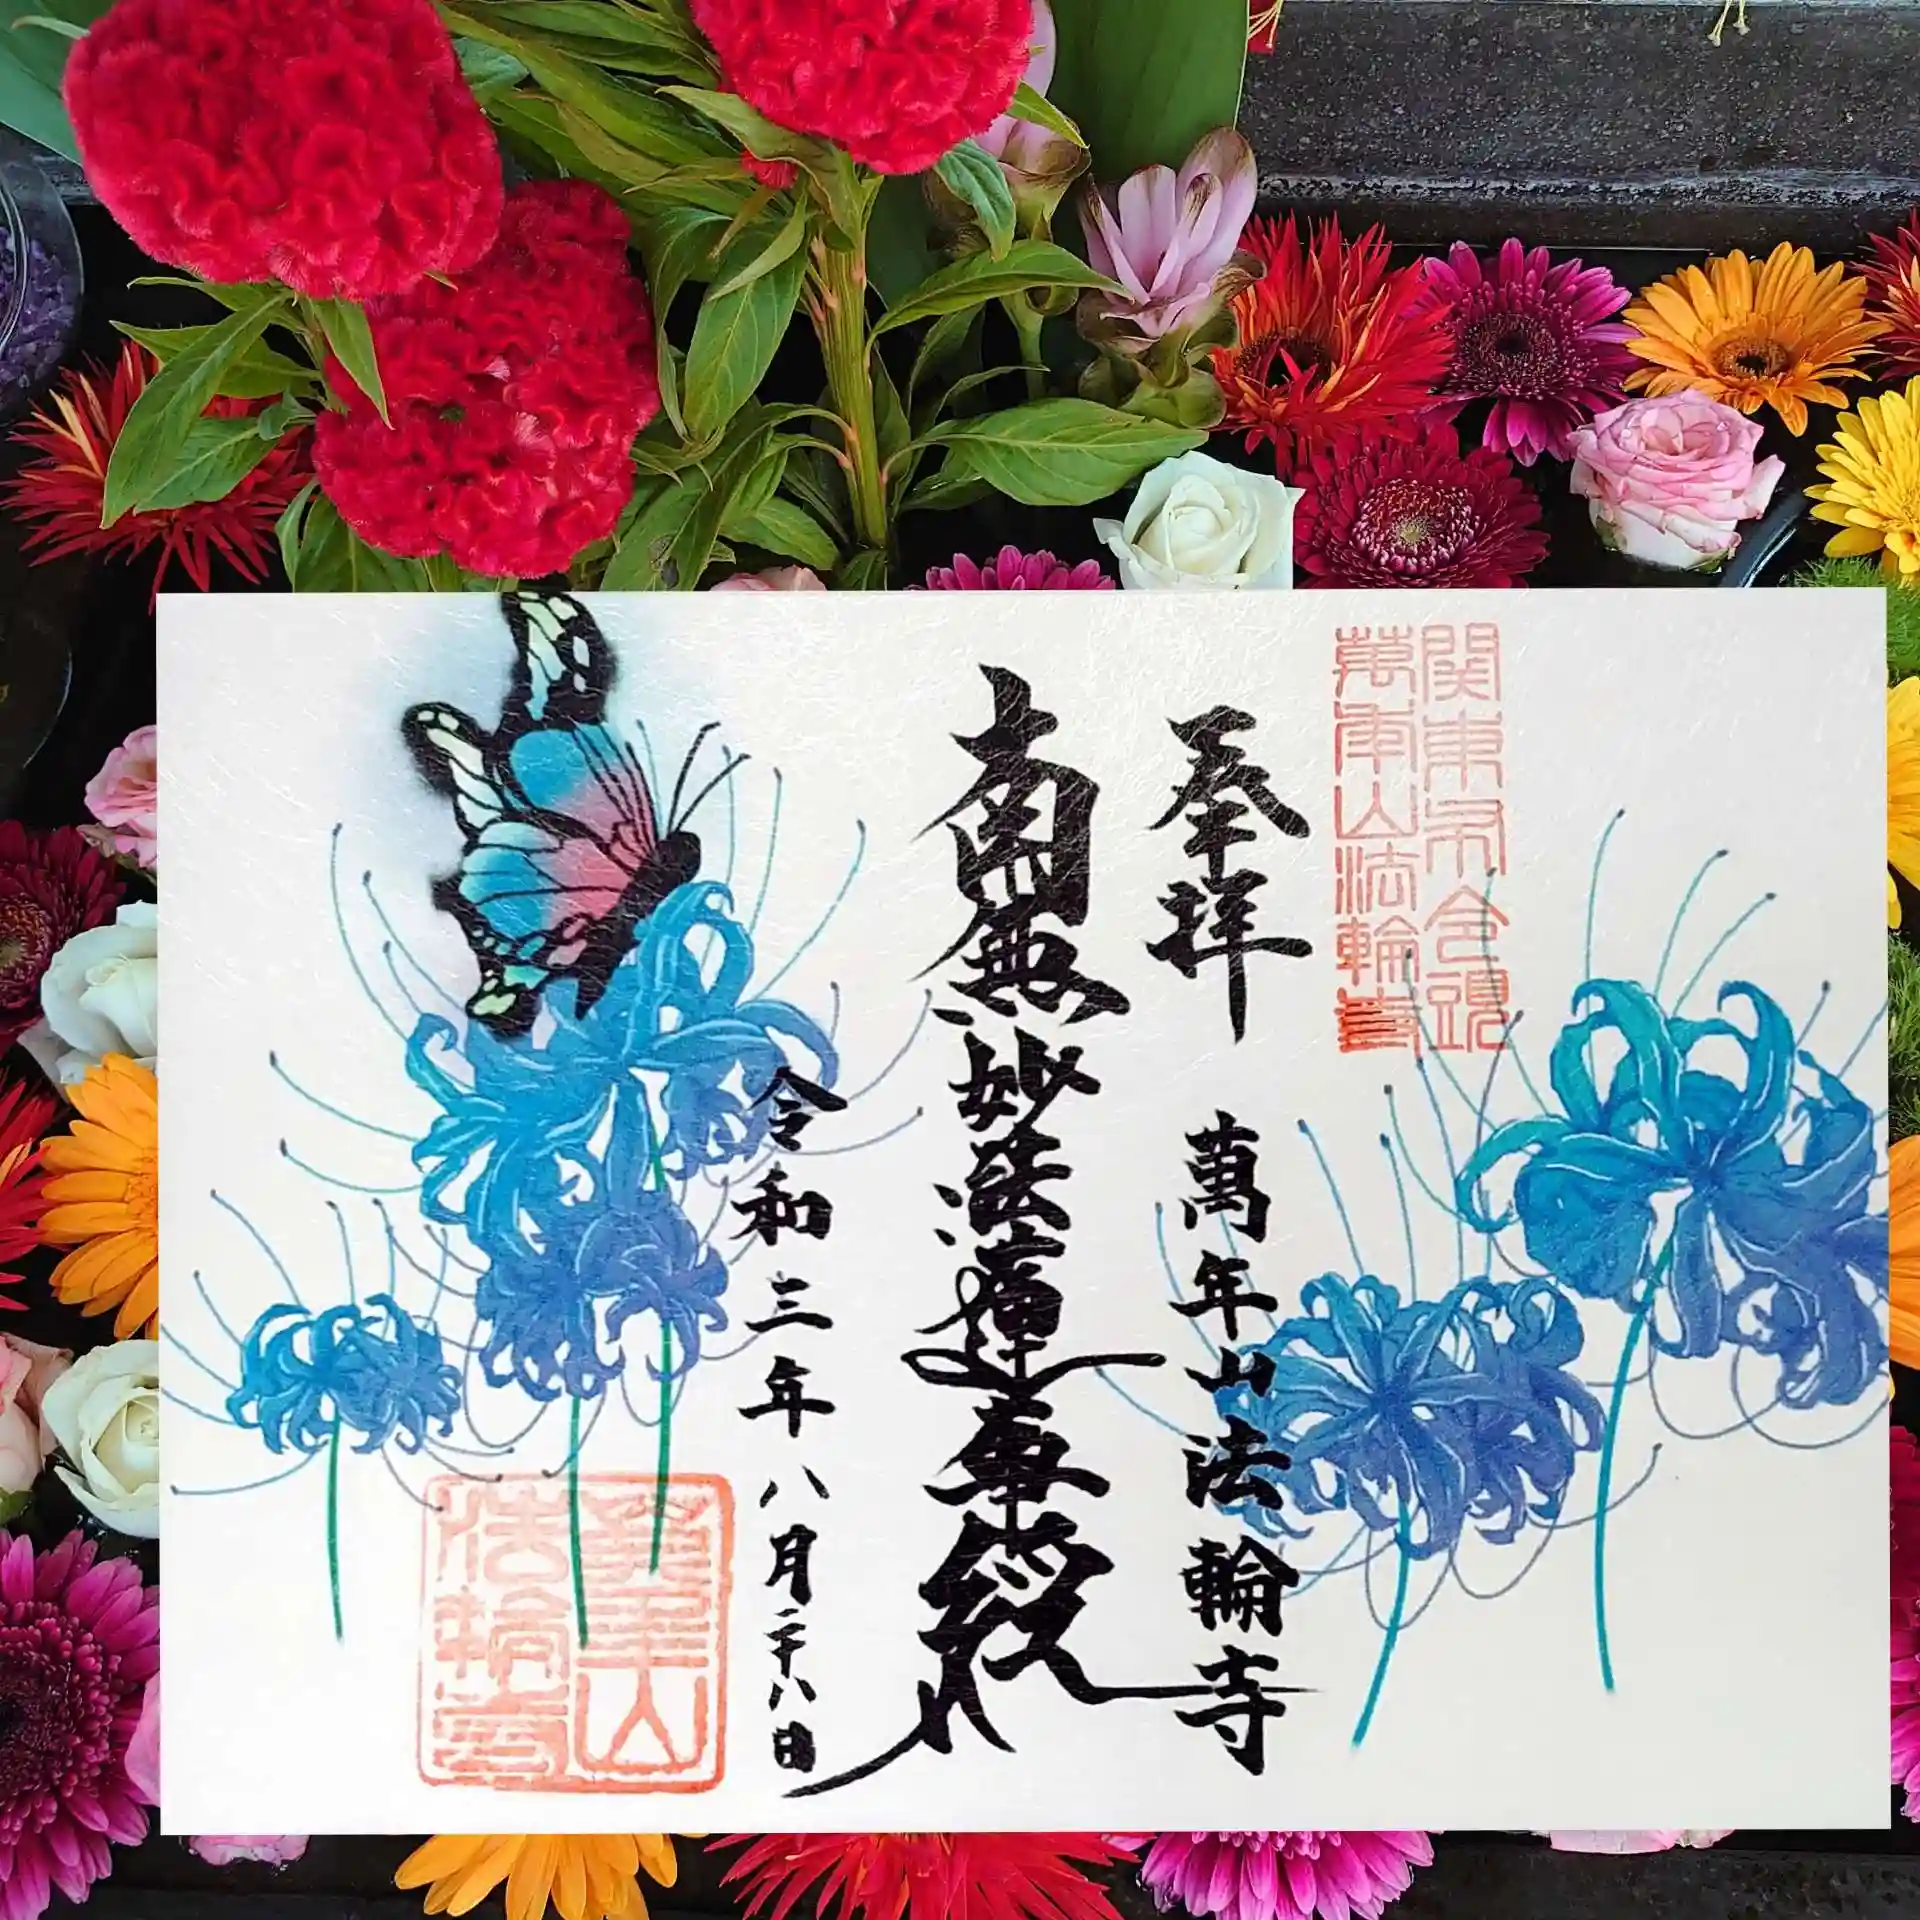 関東布令頭
萬年山法輪寺
奉拝
萬年山法輪寺
南無妙法蓮華経
令和三年八月二十八日
萬年山
法輪寺